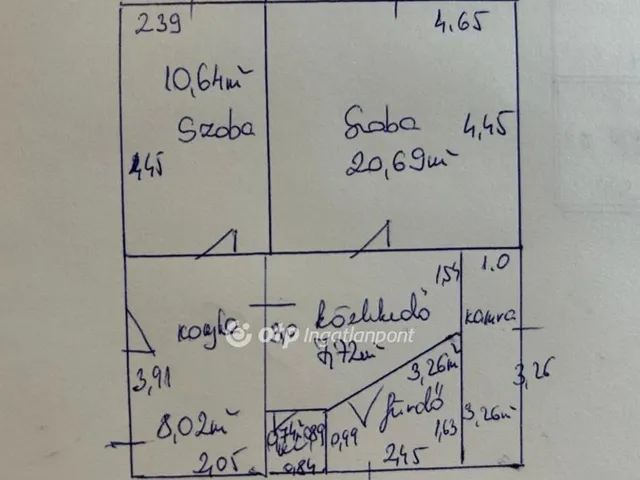 239
4.65
10,64m²
Szoba
4,45
Szoba
20,69m²
4,45
1,54
1.0
konyha
közlekedő
kamra
otp Ingatlanpont
7,72m²
3,91
3,26m²
3,26
8,02m²
0,74m²
0,89
0,99
fürdő
1,63
3,26m²
2,05
0,84
2,45